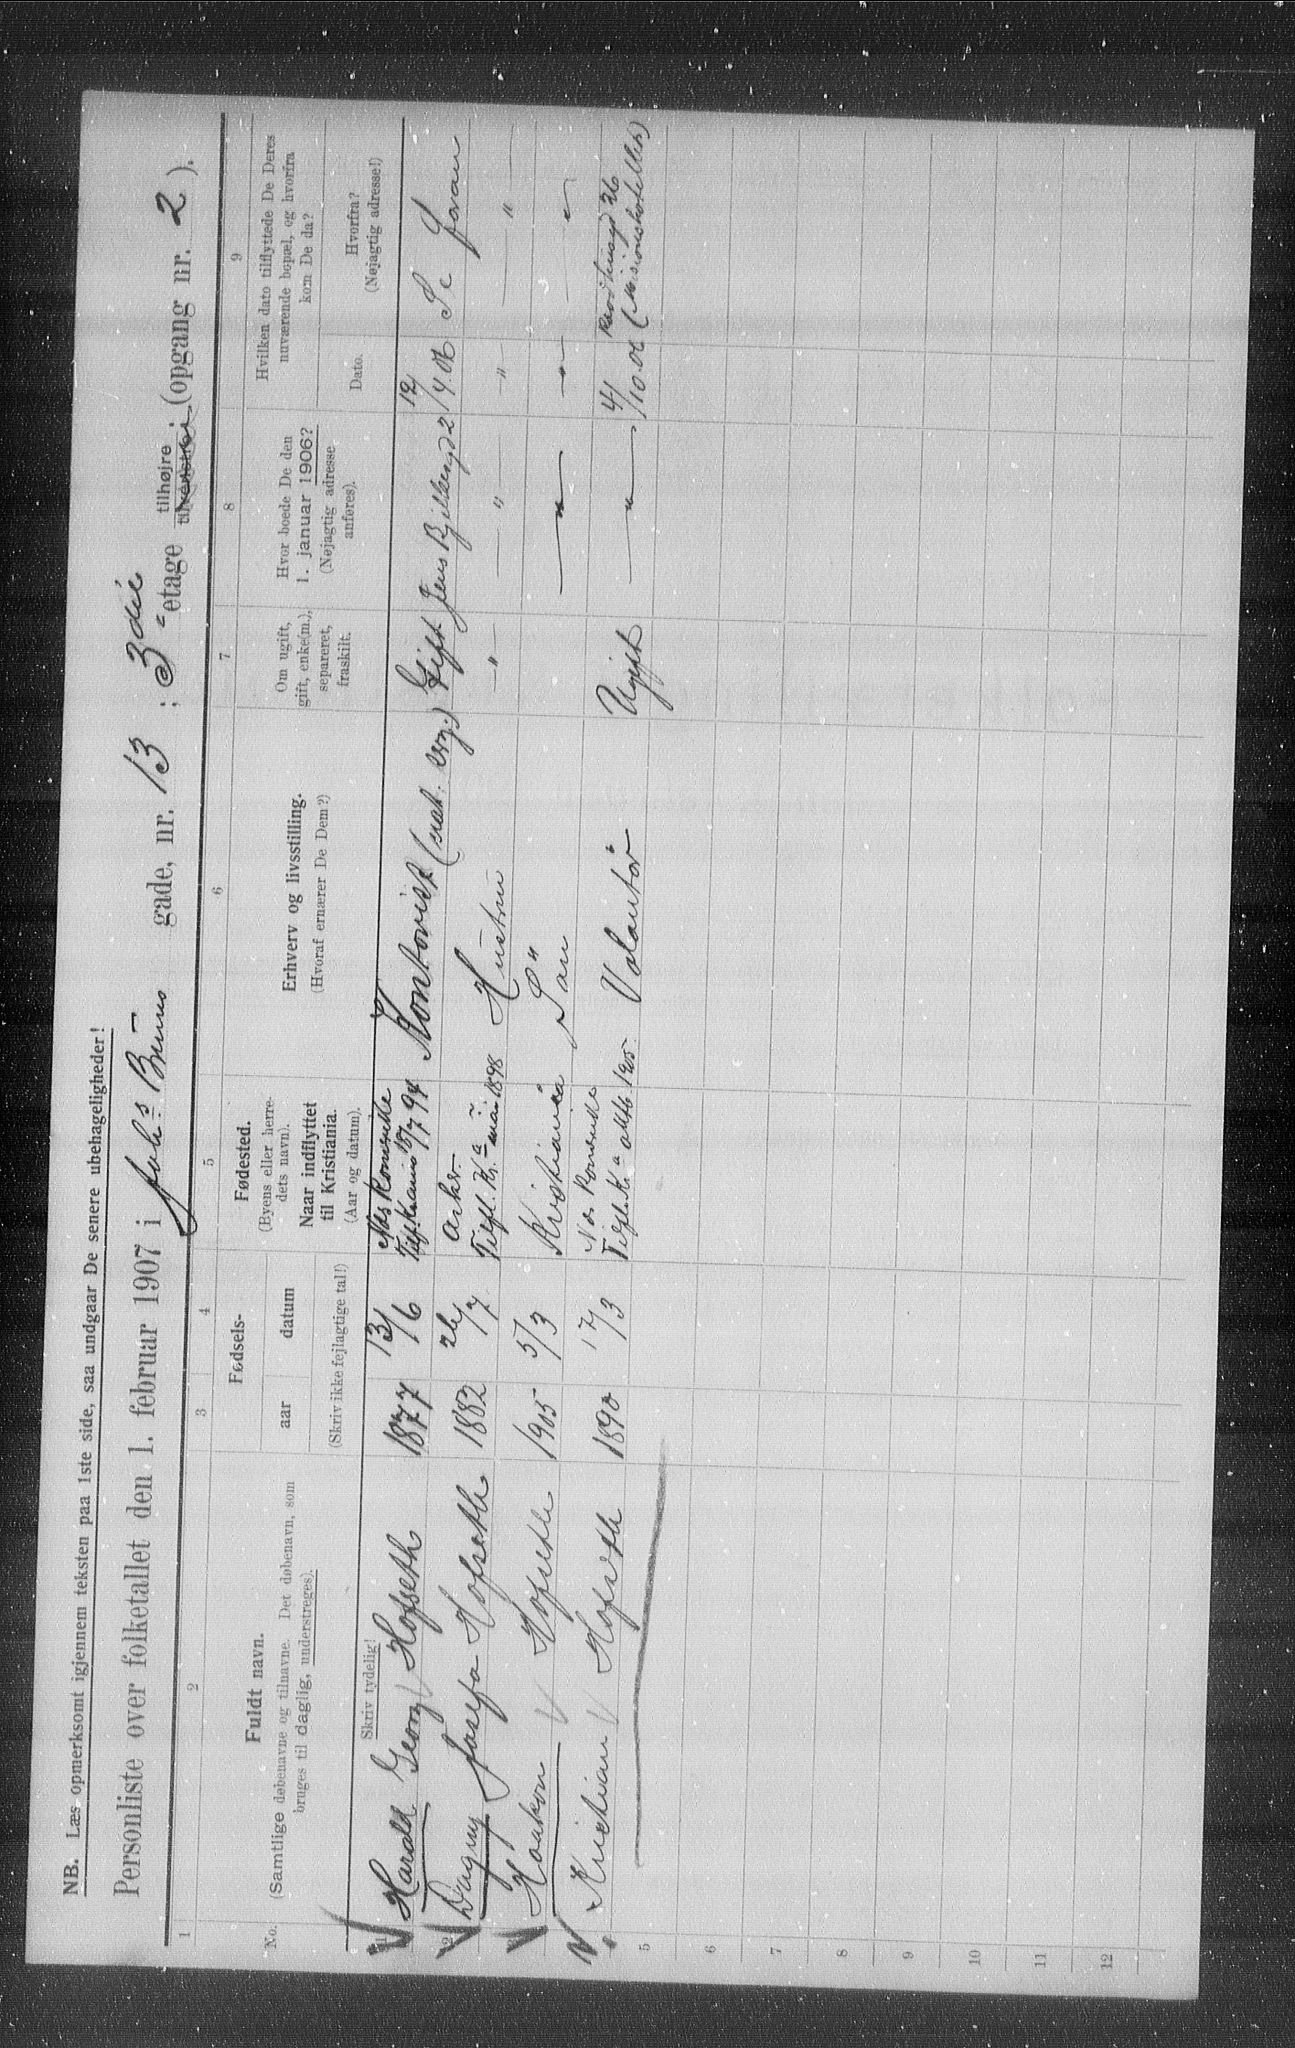 NB. Læs opmerksomt igjennem teksten paa 1ste side, saa undgaar De senere ubehageligheder!
Personliste over folketallet den 1. februar 1907 i Johs Bruns gade, nr. 13 ; 3die etage tilhøjre tilvenstre. (opgang nr. 2 ).
1 2 3 4 5 6 7 8 9
No.
Fuldt navn.
(Samtlige døbenavne og tilnavne. Det døbenavn, som
bruges til daglig, understreges).
Fødsels-
aar datum
(Skriv ikke fejlagtige tal!)
Fødested.
(Byens eller herre-
dets navn).
Naar indflyttet
til Kristiania.
(Aar og datum).
Erhverv og livsstilling.
(Hvoraf ernærer De Dem?)
Om ugift,
gift, enke(m.),
separeret,
fraskilt.
Hvor boede De den
1. januar 1906?
(Nøjagtig adresse
anføres).
Hvilken dato tilflyttede De Deres
nuværende bopæl, og hvorfra
kom De da?
Dato.
Hvorfra?
(Nøjagtig adresse!)
Skriv tydelig!
1 Harald Georg Hofseth 1877 13/6 Nes Romerike Kontorist Gift Jens Bjelkesgd 2 12/4.06 Se foran
2 Dagny Josefa Hofseth 1882 26/7 Aker Tilfl. Kr.a mai 1898 Hustru " " " "
3 Haakon Hofseth 1905 5/3 Kristiania Søn " " "
4 Kristian Hofseth 1890 17/3 Nes Romerike Tilfl. Kr.a oktb 1905. Volontør Ugift " 4/10.06 (Missionshotellet)
5
6
7
8
9
10
11
12